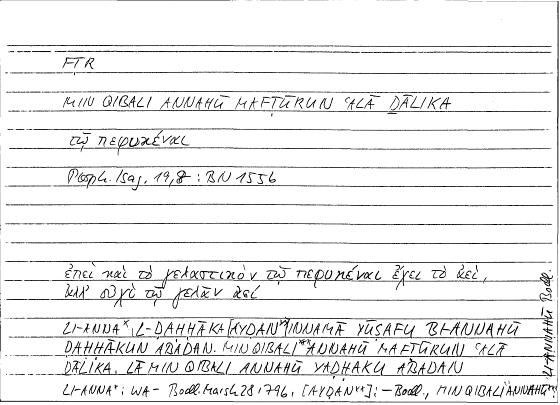 FTR
MIN QIBALI ANNAHŪ MAFṬŪRUN ʿALĀ ḎĀLIKA
τῷ πεφυκέναι
Porph. Isag. 19,8 : BN 155b
ἐπεὶ καὶ τὸ γελαστικὸν τῷ πεφυκέναι ἔχει τὸ ἀεί,
ἀλλ' οὐχὶ τῷ γελᾶν ἀεί
LI-ANNA* L-ḌAḤḤĀKA [AYḌAN**] INNAMĀ YŪṢAFU BI-ANNAHŪ
ḌAḤḤĀKUN ABADAN. MIN QIBALI*** ANNAHŪ MAFṬŪRUN ʿALĀ
ḎĀLIKA. LĀ MIN QIBALI ANNAHŪ YAḌḤAKU ABADAN
LI-ANNA*: WA- Bodl. Marsh 28, 179b, [AYḌAN**]: – Bodl., MIN QIBALI ANNAHŪ***:
LI-ANNAHŪ Bodl.